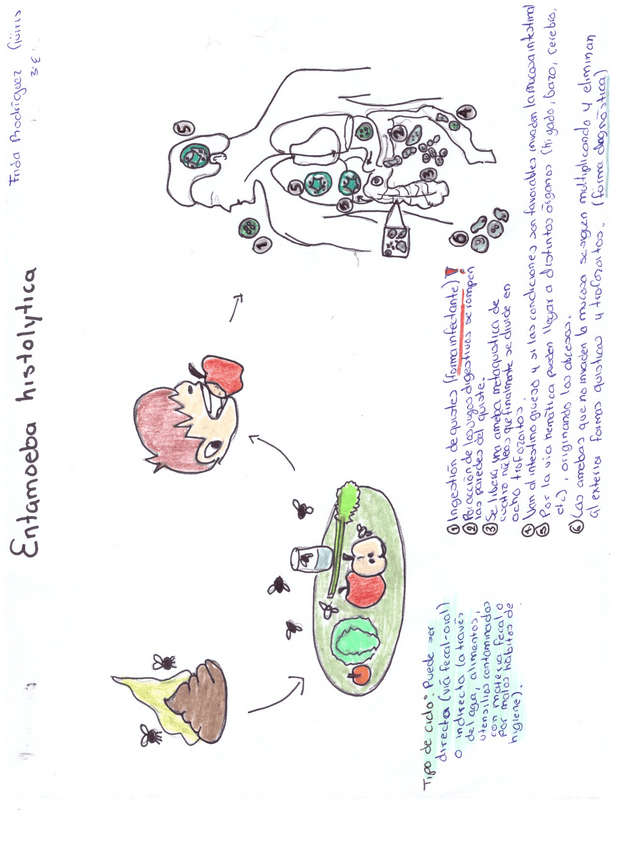 Frida Rodríguez Güiris
3°E
Entamoeba histolytica
Tipo de ciclo: Puede ser
directa (vía fecal-oral)
o indirecta (a través
del agua, alimentos,
utensilios contaminados
con materia fecal o
por malos hábitos de
higiene).
① Ingestión de quistes (forma infectante)!
② Por acción de los jugos digestivos se rompen
las paredes del quiste.
③ Se libera una ameba metaquística de
cuatro núcleos que finalmente se divide en
ocho trofozoítos.
④ Van al intestino grueso y si las condiciones son favorables invaden la mucosa intestinal
⑤ Por la vía hemática pueden llegar a distintos órganos (hígado, bazo, cerebro,
etc), originando los abscesos.
⑥ Las amebas que no invaden la mucosa se siguen multiplicando y eliminan
al exterior formas quísticas y trofozoítos. (forma diagnóstica)
5
5
1
2
3
4
6